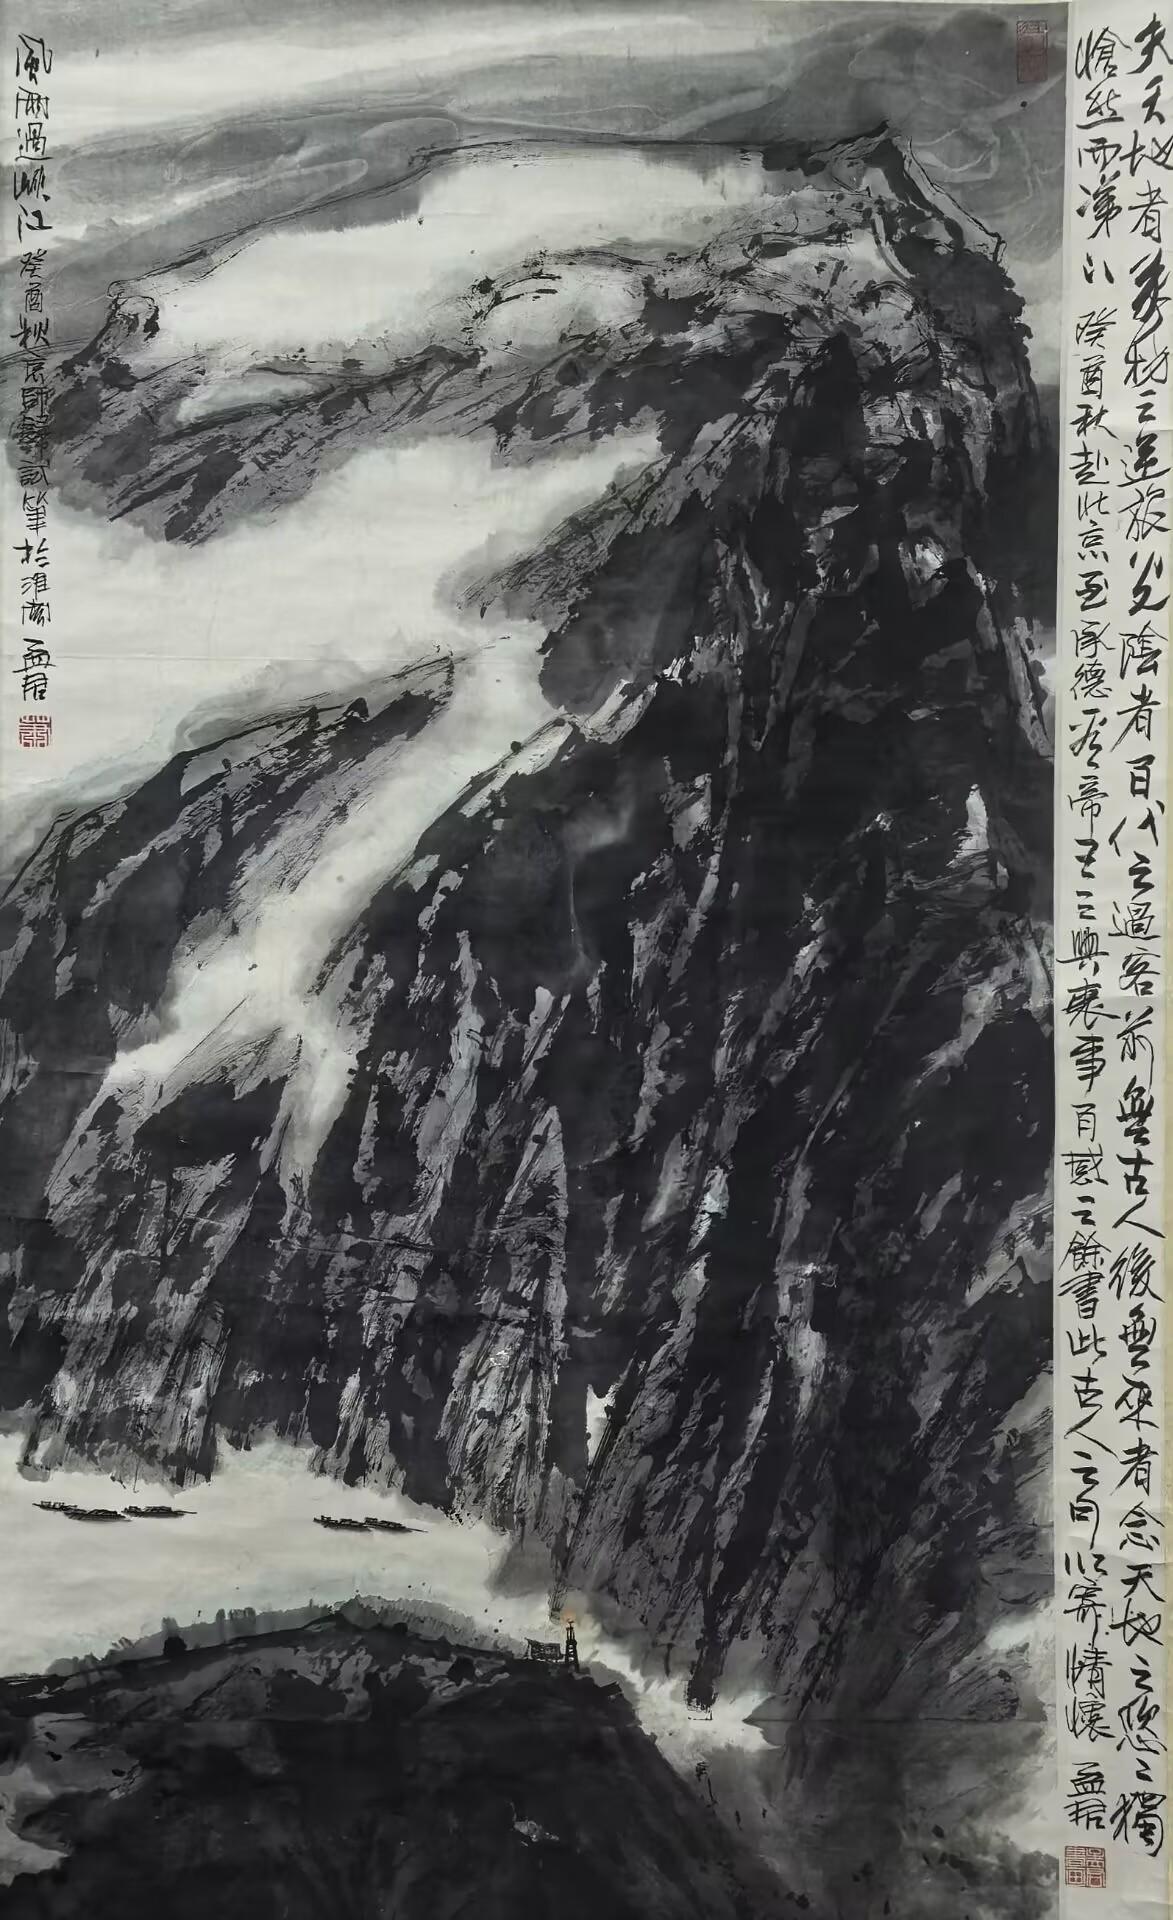 夫天地者萬物之逆旅光陰者百代之過客前無古人後無來者念天地之悠〻獨
愴然而涕下 癸酉秋赴北京至承德帝王之興衰事百感之餘書此古人之句以寄情懷
風雨過峽江 癸酉秋師試筆於淮南